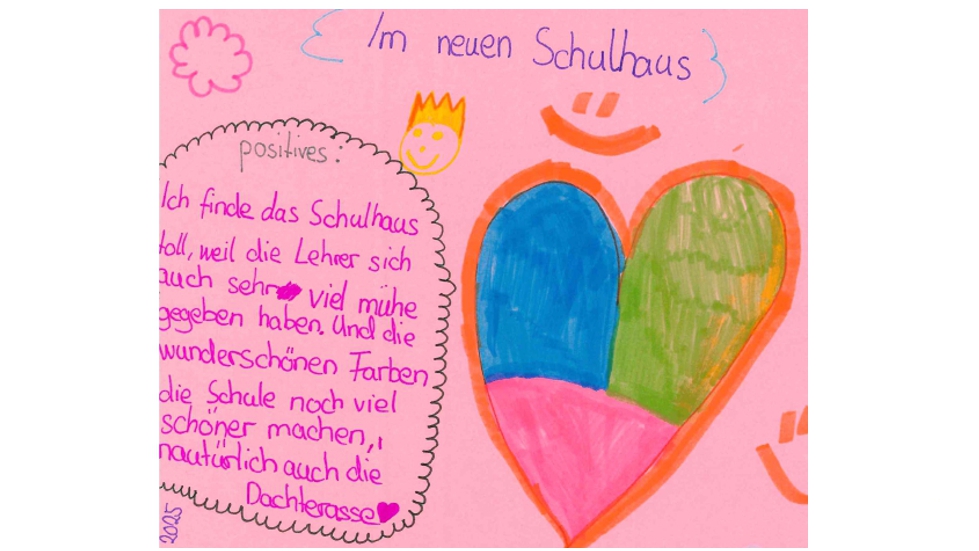 Im neuen Schulhaus
positives:
Ich finde das Schulhaus
toll, weil die Lehrer sich
auch sehr viel mühe
gegeben haben. Und die
wunderschönen Farben
die Schule noch viel
schöner machen,
nautürlich auch die
Dachterasse
2025